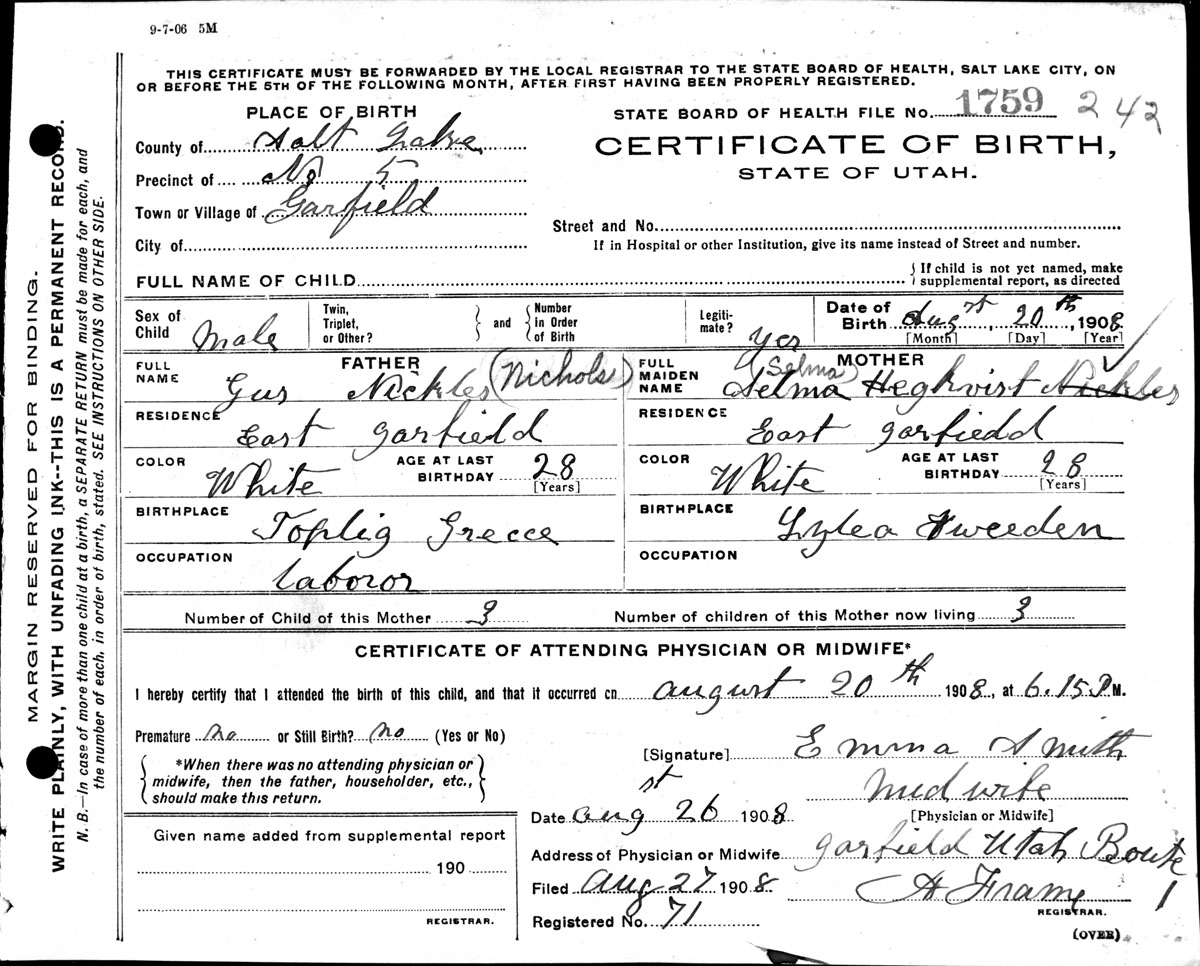 9-7-06 5M
THIS CERTIFICATE MUST BE FORWARDED BY THE LOCAL REGISTRAR TO THE STATE BOARD OF HEALTH, SALT LAKE CITY, ON
OR BEFORE THE 5TH OF THE FOLLOWING MONTH, AFTER FIRST HAVING BEEN PROPERLY REGISTERED.
PLACE OF BIRTH
County of Salt Lake
Precinct of No 5
Town or Village of Garfield
City of
STATE BOARD OF HEALTH FILE No. 1759 242
CERTIFICATE OF BIRTH,
STATE OF UTAH.
Street and No.
If in Hospital or other Institution, give its name instead of Street and number.
FULL NAME OF CHILD
If child is not yet named, make
supplemental report, as directed
Sex of Child Male
Twin, Triplet, or Other? and Number in Order of Birth
Legiti-mate? Yes
Date of Birth Augst, 20th, 1908
[Month] [Day] [Year]
FATHER
FULL NAME Gus Nickles (Nichols)
RESIDENCE East Garfield
COLOR White
AGE AT LAST BIRTHDAY 28
[Years]
BIRTHPLACE Toplig Grecce
OCCUPATION laboror
MOTHER
FULL MAIDEN NAME (Selma) Selma Hegkvist Nickles
RESIDENCE East Garfiedd
COLOR White
AGE AT LAST BIRTHDAY 28
[Years]
BIRTHPLACE Lylea Sweeden
OCCUPATION
Number of Child of this Mother 3 Number of children of this Mother now living 3
CERTIFICATE OF ATTENDING PHYSICIAN OR MIDWIFE*
I hereby certify that I attended the birth of this child, and that it occurred on august 20th 1908, at 6.15 P.M.
Premature no or Still Birth? no (Yes or No)
*When there was no attending physician or
midwife, then the father, householder, etc.,
should make this return.
[Signature] Emma Smith
Midwife
[Physician or Midwife]
Date augst 26 1908
Address of Physician or Midwife Garfield Utah Boute 1
Filed Aug 27 1908 A Frame
REGISTRAR.
Registered No. 71
(OVER)
Given name added from supplemental report
190
REGISTRAR.
MARGIN RESERVED FOR BINDING.
WRITE PLAINLY, WITH UNFADING INK--THIS IS A PERMANENT RECORD.
N. B.—In case of more than one child at a birth, a SEPARATE RETURN must be made for each, and
the number of each, in order of birth, stated. SEE INSTRUCTIONS ON OTHER SIDE.